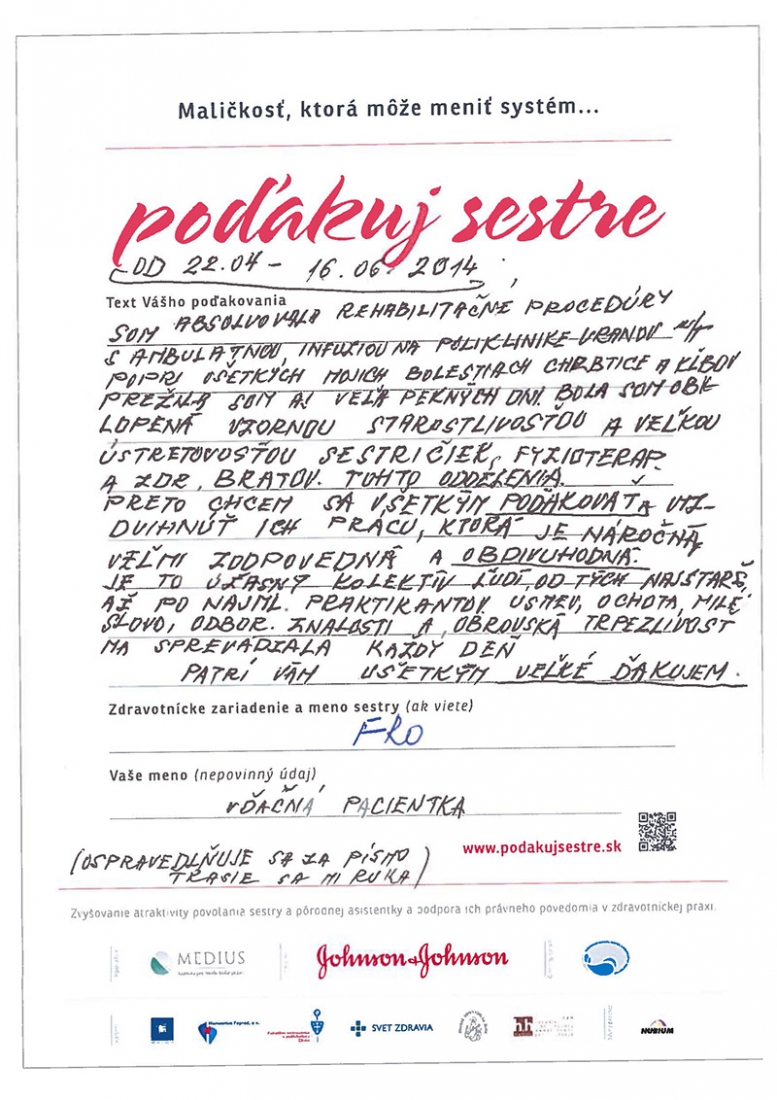 Maličkosť, ktorá môže meniť systém...
poďakuj sestre
OD 22.04 - 16.06. 2014
Text Vášho poďakovania
SOM ABSOLVOVALA REHABILITAČNÉ PROCEDÚRY
S AMBULATNOU, INFUZIOU NA POLIKLINIKE VRANOV n/T
POPRI VŠETKÝCH MOJICH BOLESTIACH CHRBTICE A KĹBOV
PREŽILA SOM AJ VEĽA PEKNÝCH DNÍ. BOLA SOM OBK
LOPENÁ VZORNOU STAROSTLIVOSŤOU A VEĽKOU
ÚSTRETOVOSŤOU SESTRIČIEK, FYZIOTERAP.
A ZDR. BRATOV. TOHTO ODDELENIA.
PRETO CHCEM SA VŠETKÝM POĎAKOVAŤ A VYZ-
DVIHNÚŤ ICH PRÁCU, KTORÁ JE NÁROČNÁ,
VEĽMI ZODPOVEDNÁ A OBDIVUHODNÁ.
JE TO ÚŽASNÝ KOLEKTÍV ĽUDÍ, OD TÝCH NAJSTARŠ.
AŽ PO NAJML. PRAKTIKANTOV. USMEV, OCHOTA, MILÉ
SLOVO, ODBOR. ZNALOSTI A OBROVSKÁ TRPEZLIVOST
MA SPREVÁDZALA KAŽDÝ DEŇ
PATRÍ VÁM VŠETKÝM VEĽKÉ ĎAKUJEM.
Zdravotnícke zariadenie a meno sestry (ak viete)
FRO
Vaše meno (nepovinný údaj)
VĎAČNÁ PACIENTKA
www.podakujsestre.sk
(OSPRAVEDLŇUJE SA ZA PÍSMO
TRASIE SA MI RUKA)
Zvyšovanie atraktivity povolania sestry a pôrodnej asistentky a podpora ich právneho povedomia v zdravotníckej praxi.
MEDIUS
Johnson & Johnson
SVET ZDRAVIA
NUBIUM